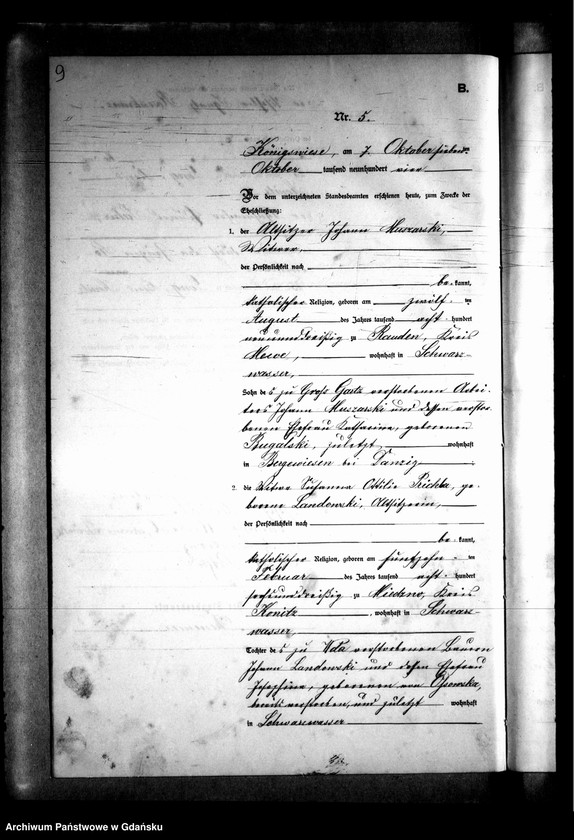 9
B.
Nr. 5.
Königswiese, am 7 Oktober
Oktober tausend neunhundert vier
Vor dem unterzeichneten Standesbeamten erschienen heute, zum Zwecke der
Eheschließung:
1. der Altsitzer Johann Muszarski,
Witwer,
der Persönlichkeit nach
be kannt,
katholischer Religion, geboren am zwölf ten
August des Jahres tausend acht hundert
neununddreißig zu Rauden, Kreis
Mewe, wohnhaft in Schwarz-
wasser,
Sohn des zu Groß Gartz verstorbenen Arbei-
ters Johann Muszarski und dessen verstor-
benen Ehefrau Katharina, geborenen
Bugalski, zuletzt wohnhaft
in Bergewiesen bei Danzig
2. die Witwe Susanna Ottilie Prichba, ge-
borene Landowski, Altsitzerin,
der Persönlichkeit nach
be kannt,
katholischer Religion, geboren am fünfzehn ten
Februar des Jahres tausend acht hundert
sechsunddreißig zu Miedzno, Kreis
Konitz, wohnhaft in Schwarz-
wasser,
Tochter des zu Wda verstorbenen Bauern
Johann Landowski und dessen Ehefrau
Josephine, geborenen von Ossowska,
verstorben, und zuletzt wohnhaft
in Schwarzwasser
Archiwum Państwowe w Gdańsku